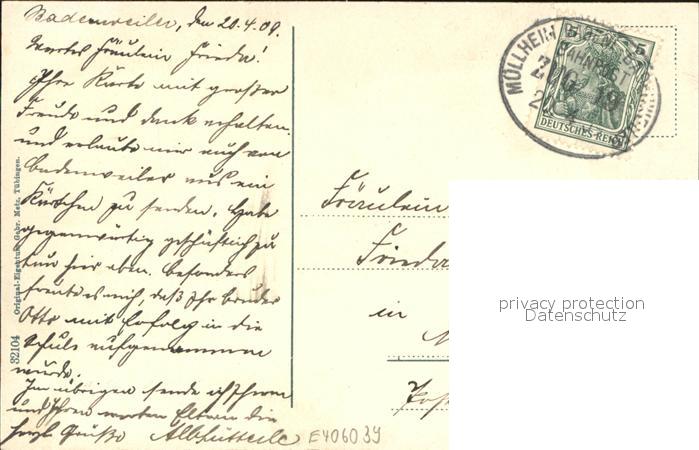 Badenweiler, den 20.4.09.
Wertes Fräulein Frieda!
Ihre Karte mit großer
Freude und dank erhalten,
und erlaube mir auch von
Badenweiler aus ein
Kärtchen zu senden. Habe
gegenwärtig geschäftlich zu
tun hier oben. Besonders
freute es mich, daß Ihr bruder
Otto mit Erfolg in die
Schule aufgenommen
wurde.
Im übrigen sende ich Ihnen
und Ihren werten Eltern die
herzl Grüße
E406039
32104 Original-Eigentum Gebr. Metz, Tübingen.
MÜLLHEIM
BAHNPOST
ZUG
5 5
DEUTSCHES REICH
Fräulein
Frieda
in
privacy protection
Datenschutz